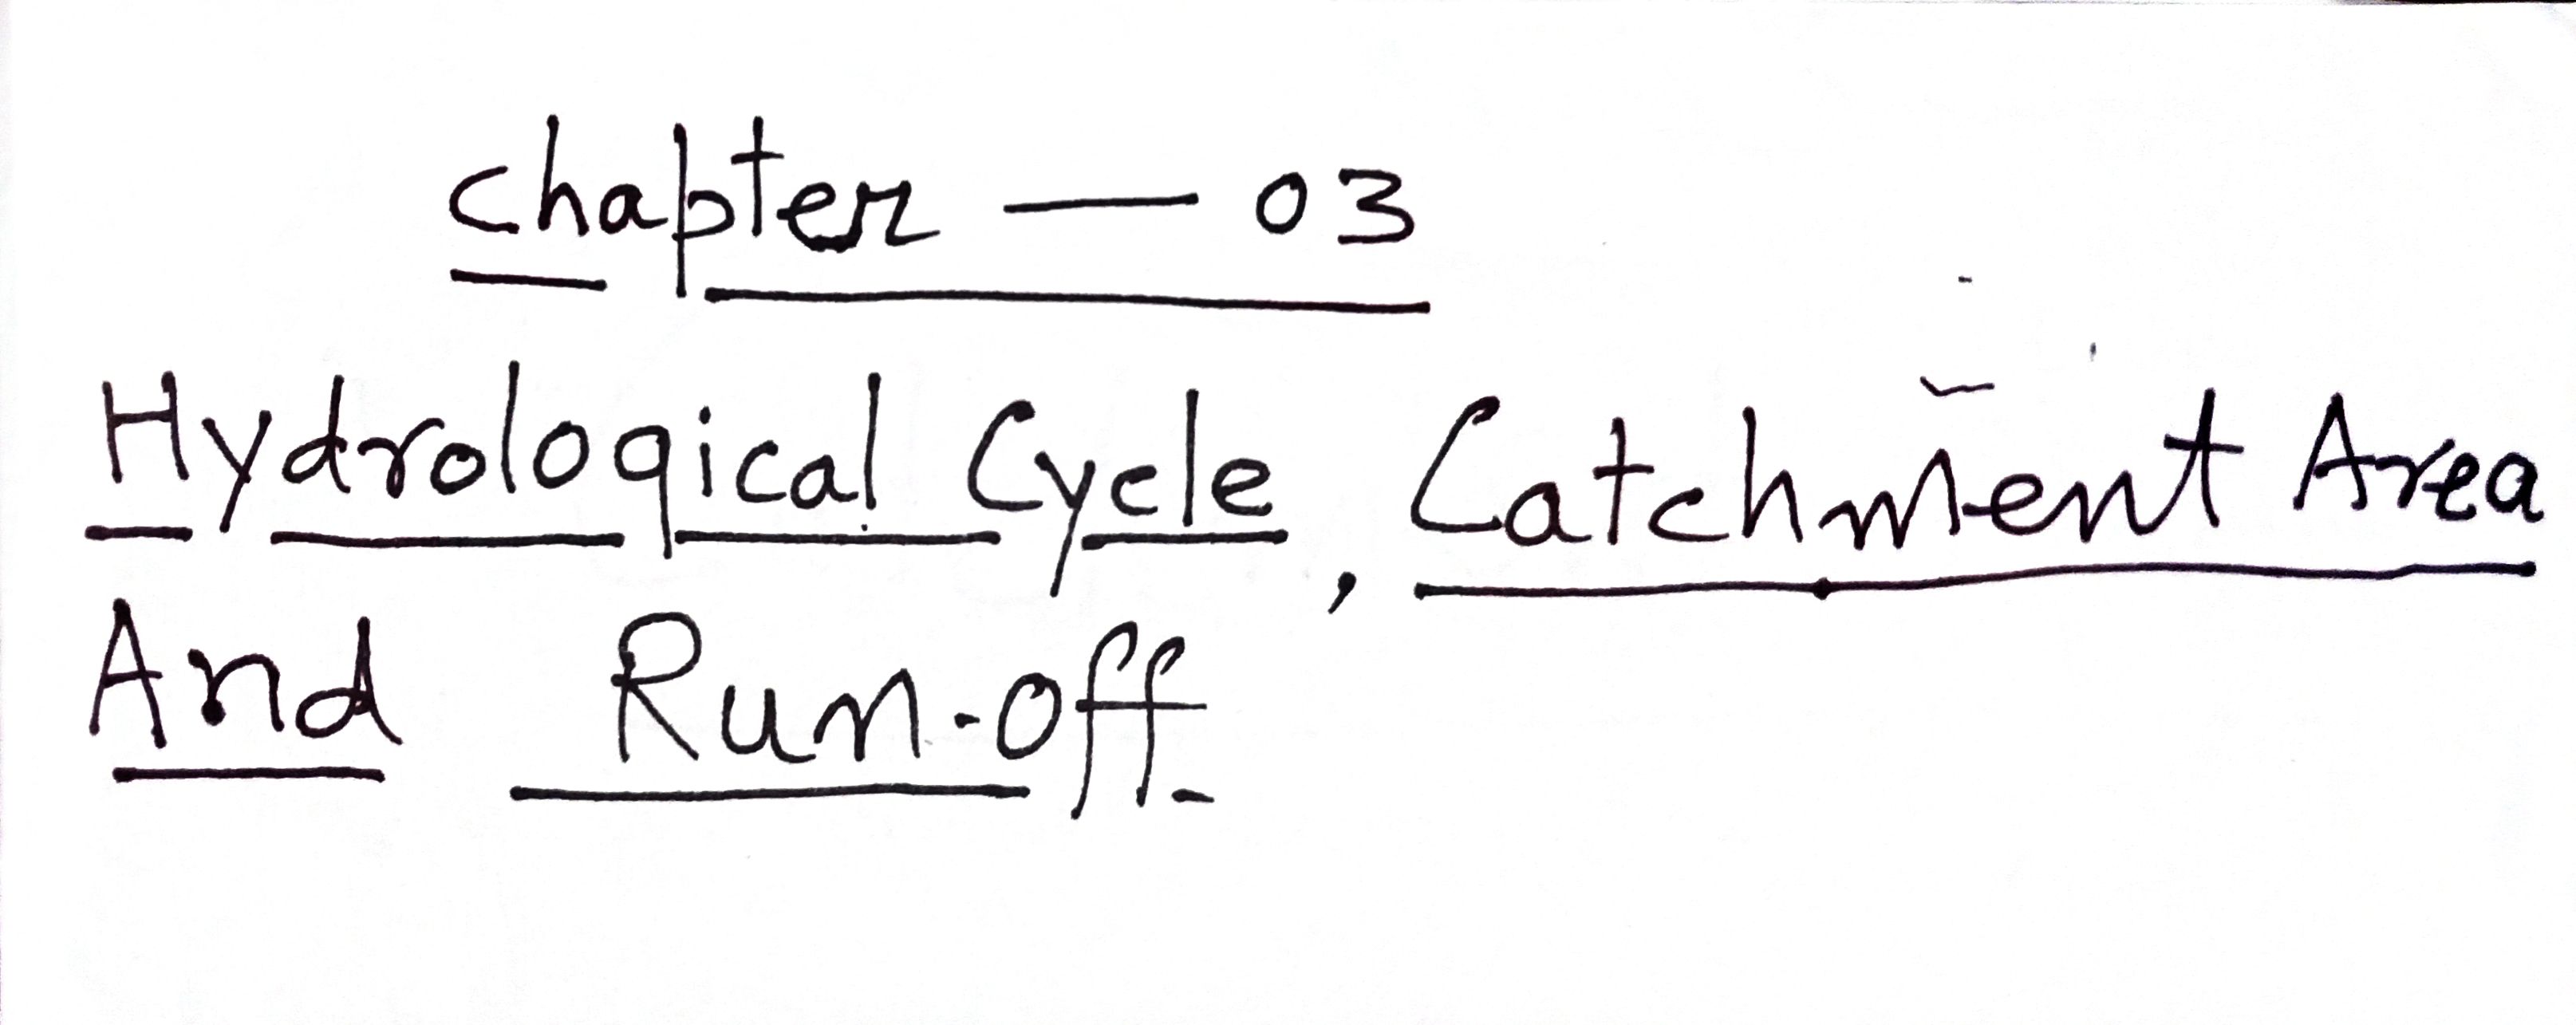 Chapter — 03
Hydrological Cycle, Catchment Area
And Run-off.